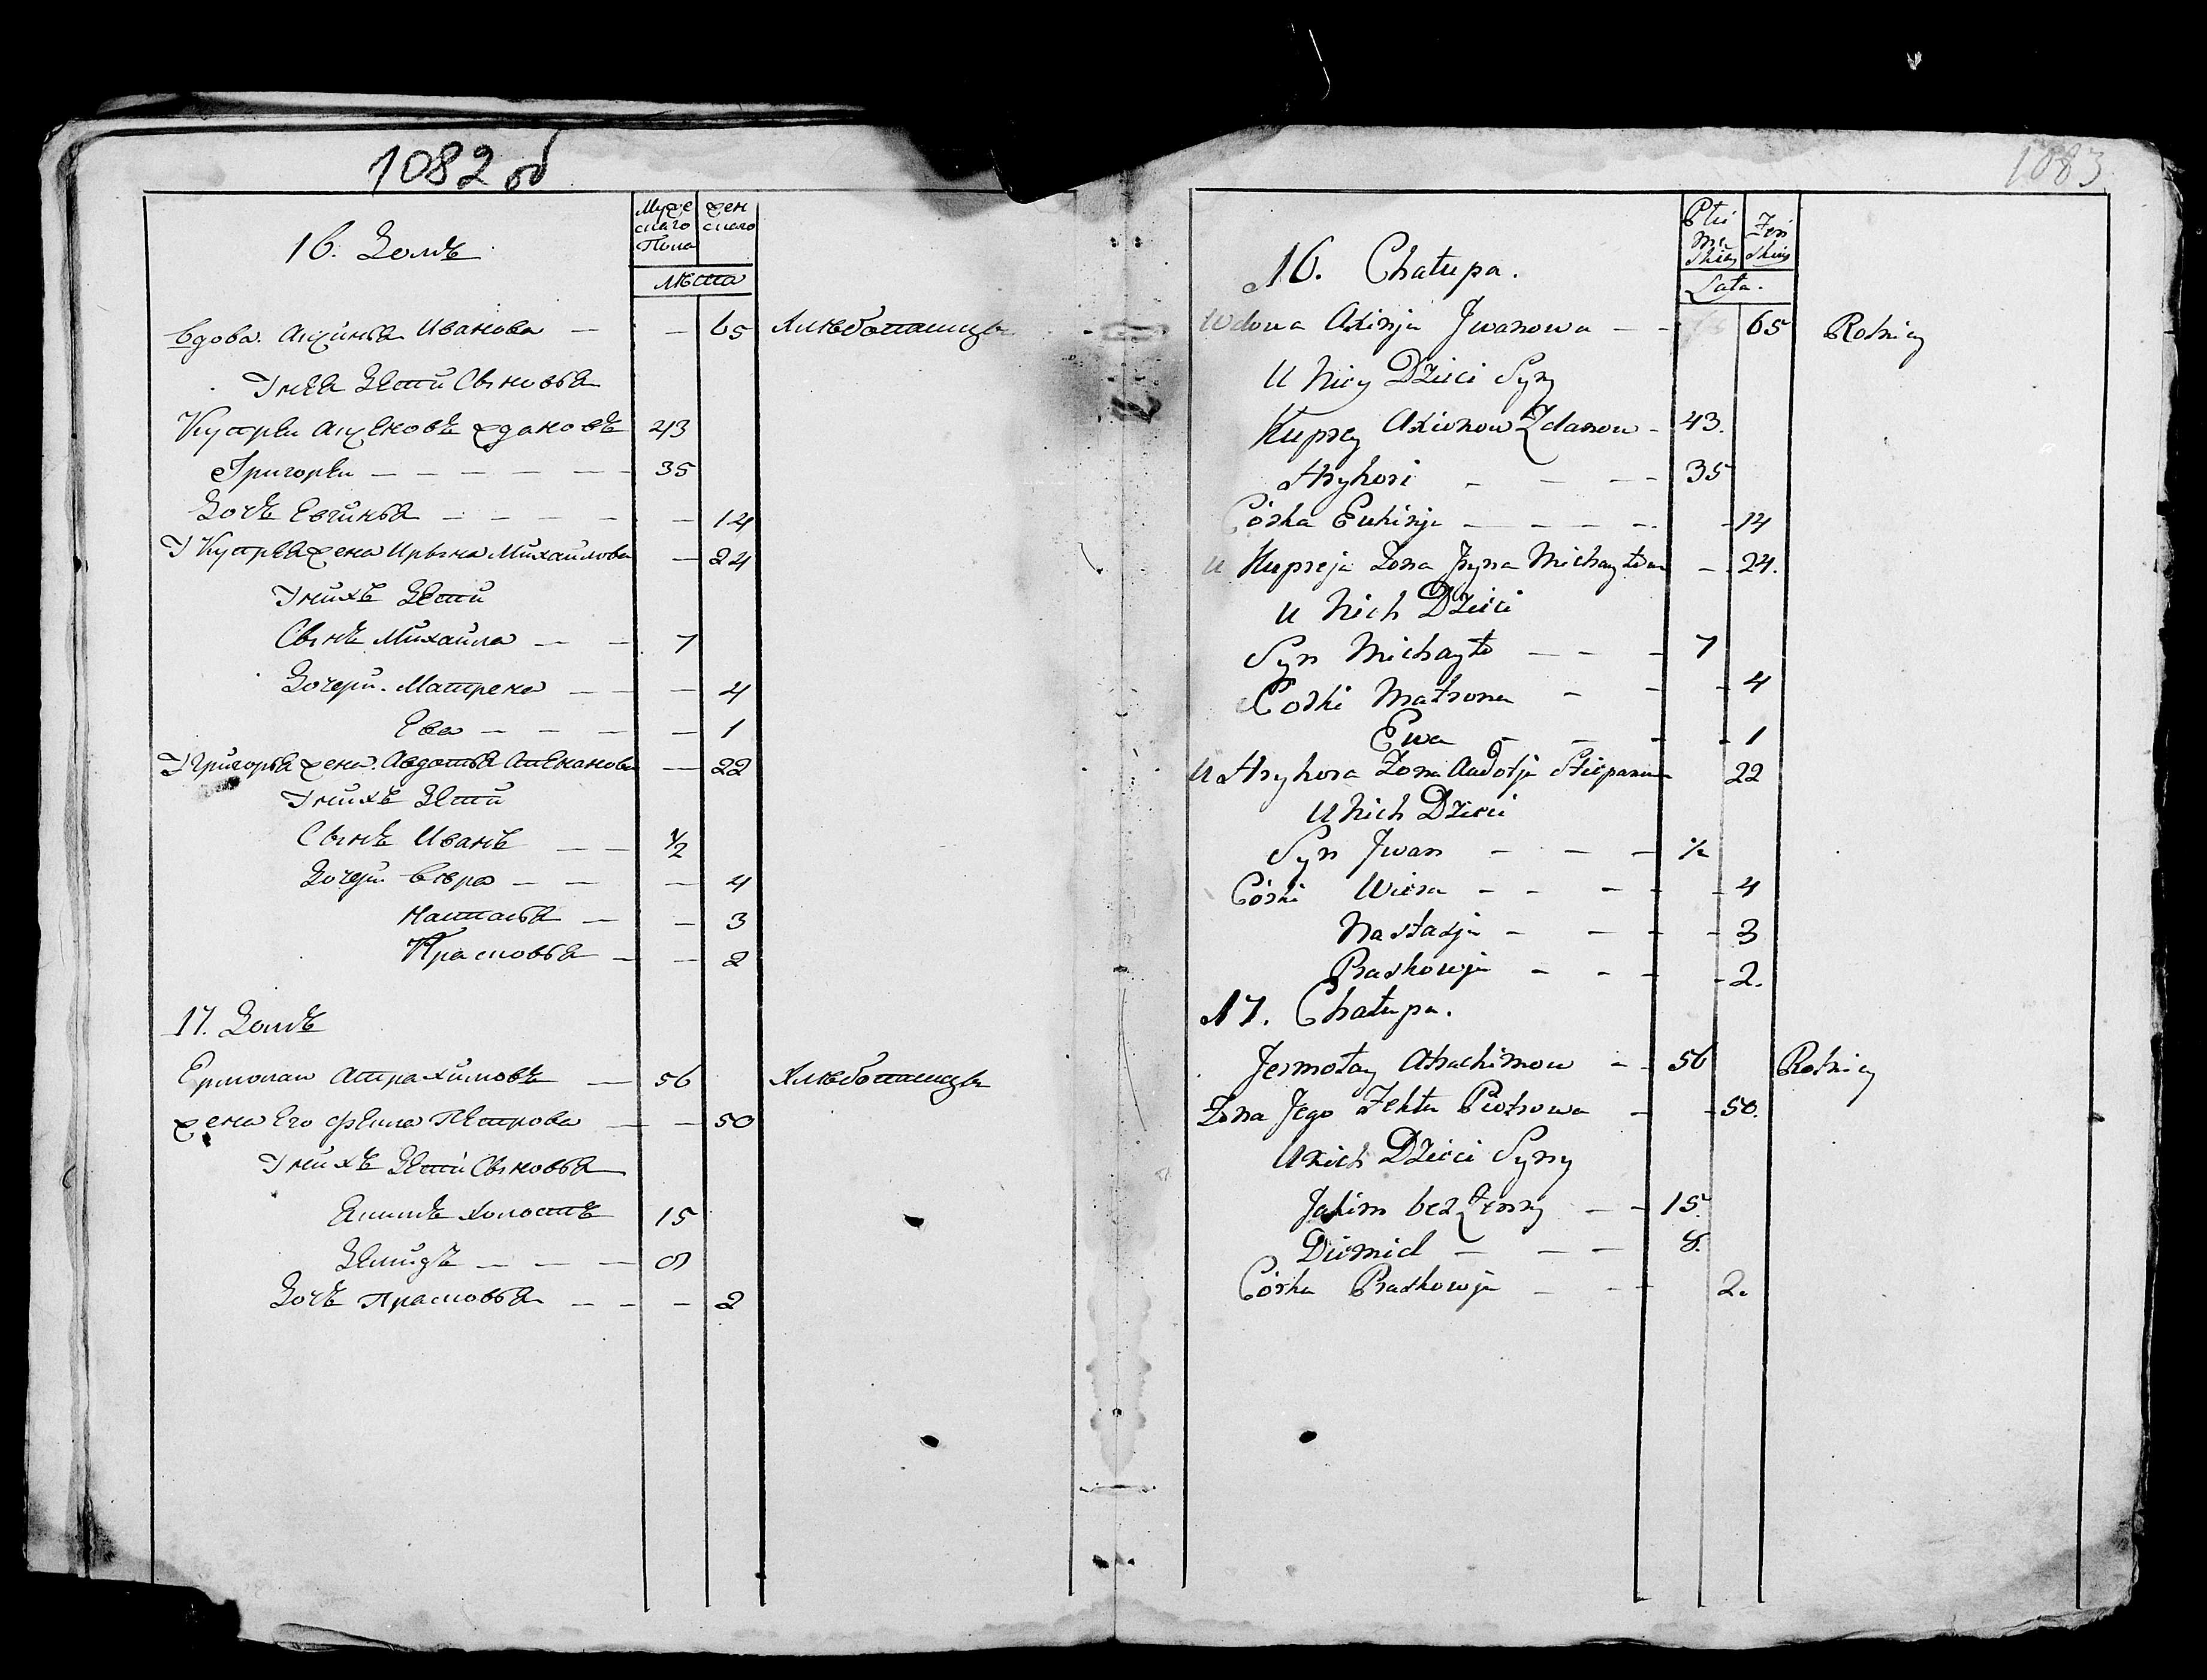 1082 об
16. Домъ
Мужескаго Пола
женскаго
Лѣта
вдова Аксинья Иванова — — 65 Хлѣбопашцы
У нея Дети Сыновья
Купрей Аксеновъ Ждановъ 43
Григорей — — — — — — 35
Дочь Евгинья — — — — — 14
У Купрея жена Ирына Михаилова — 24
У нихъ Дети
Сынъ Михаила — — 7
Дочери Матрена — — — 4
Ева — — — — 1
У Григорья жена Авдотья Степанова — 22
У нихъ Дети
Сынъ Иванъ — — 1/2
Дочери Вера — — — 4
Настасья — — 3
Прасковья — — 2
17. Домъ
Ермолай Атрахимовъ — 56 Хлѣбопашцы
жена Его Фекла Петрова — — 50
У нихъ Дети Сыновья
Якимъ холостъ 15
Демидъ — — — 8
Дочь Прасковья — — — 2
1083
16. Chałupa.
Płci Męskiey
Żeńskiey
Lata.
Wdowa Axinja Jwanowa — — 65 Rolnicy
U Niey Dzieci Syny
Kuprey Axionow Zdanow - 43.
Hryhori — — — — 35
Córka Euhinja — — — — - 14
U Kupreja Żona Jryna Michayłowa — - 24.
U Nich Dzieci
Syn Michayło — — — 7
Corki Matrona - - - 4
Ewa - - - - 1
U Hryhora Żona Audotja Sciepanowa 22
U Nich Dzieci
Syn Jwan — — — 1/2
Córki Wiera — - — - - 4
Nastasja - — - - 3
Praskowja - - - - 2.
17. Chałupa.
Jermołay Atrachimow — - 56 Rolnicy
Żona Jego Fekla Piotrowa — - 50.
U Nich Dzieci Syny
Jakim bez Żenny — - 15.
Diemid — — — 8.
Córka Praskowja — - - 2.